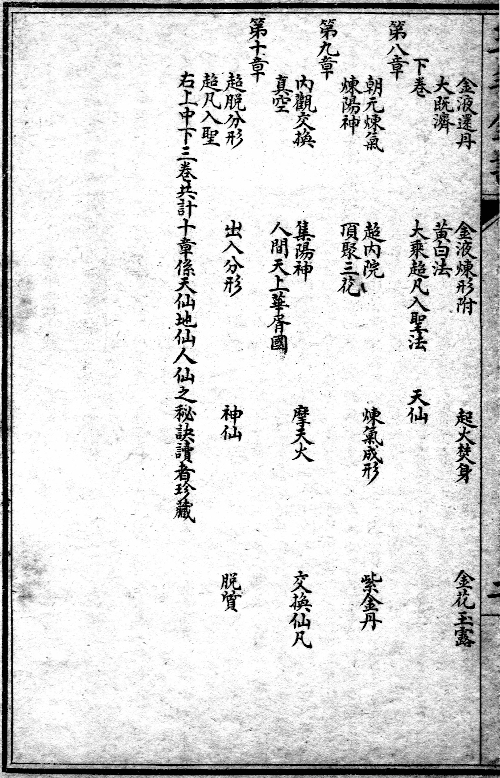 金液還丹　金液煉形附　起火焚身　金花玉露
大既濟　黃白法
下卷　大乘超凡入聖法　天仙
第八章
朝元煉氣　超內院　煉氣成形　紫金丹
煉陽神　頂聚三花
第九章
內觀交換　集陽神　摩天火　交換仙凡
真空　人間天上華胥國
第十章
超脫分形　出入分形　神仙　脫質
超凡入聖
右上中下三卷共計十章係天仙地仙人仙之秘訣讀者珍藏